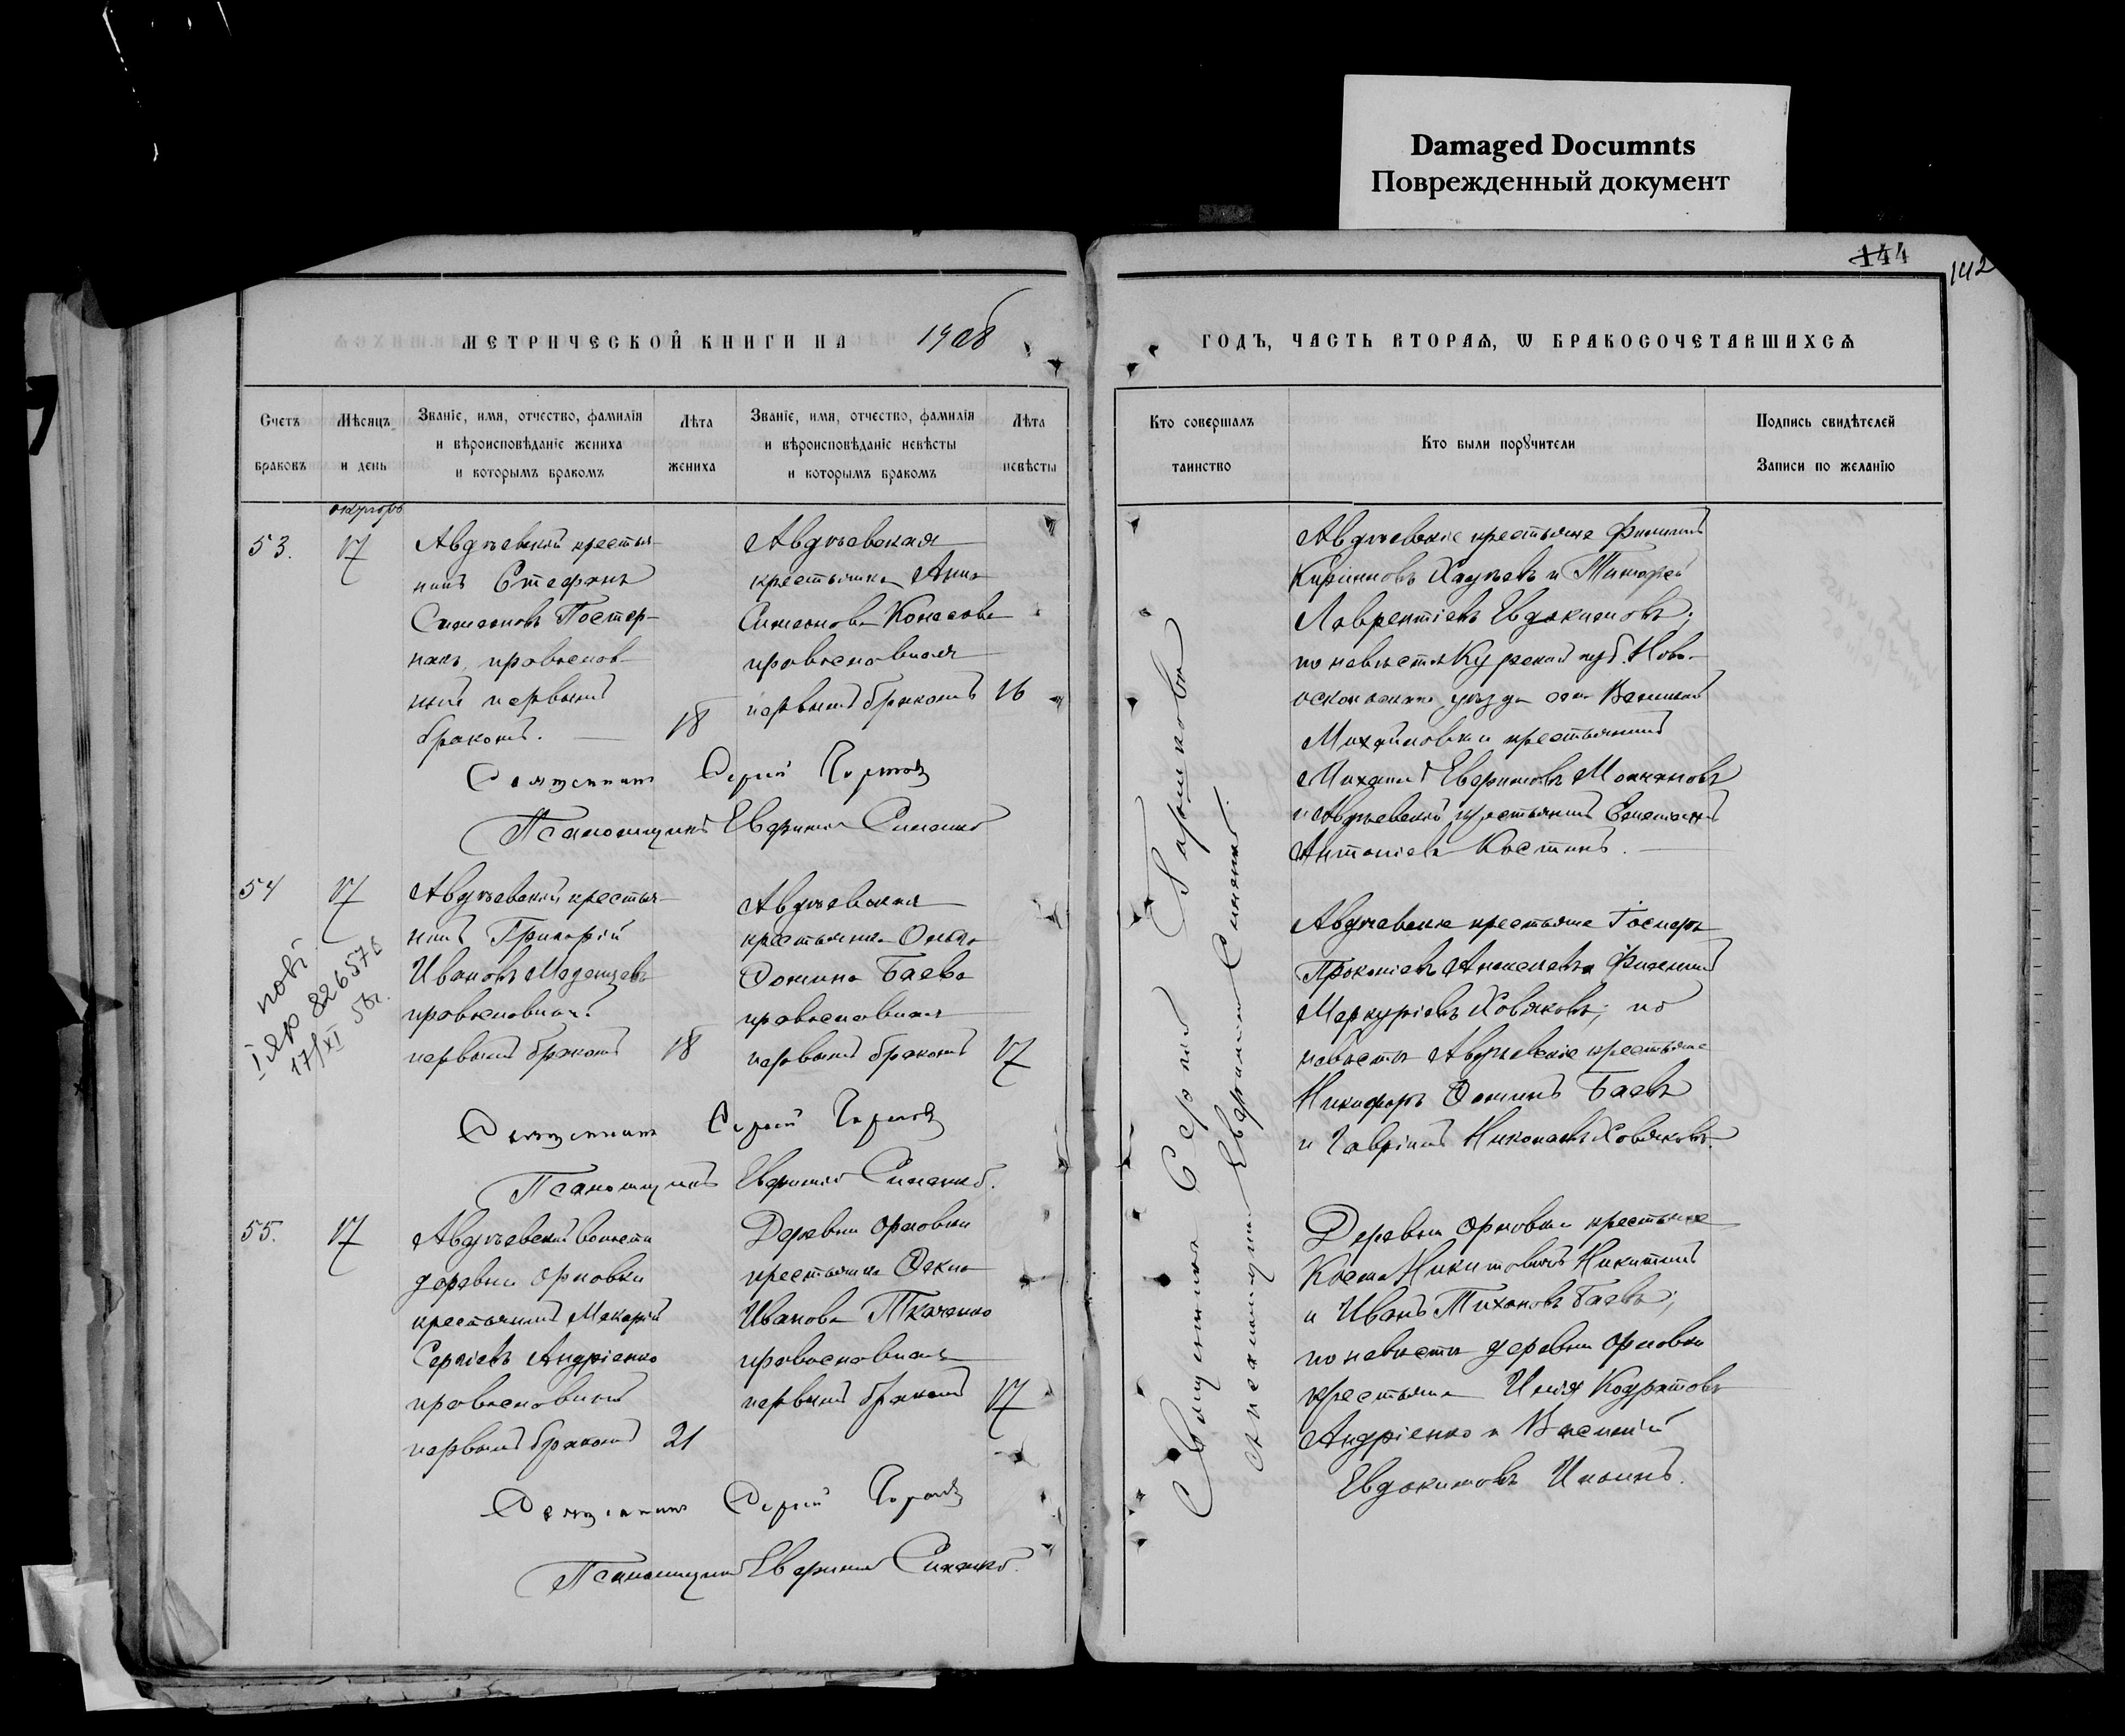 Damaged Documnts
Поврежденный документ
144
142
МЕТРИЧЕСКОЙ КНИГИ НА 1908
ГОДЪ, ЧАСТЬ ВТОРАѦ, Ѡ БРАКОСОЧЕТАВШИХСѦ
Счетъ браковъ
Мѣсяцъ и день
Званіе, имя, отчество, фамилія
и вѣроисповѣданіе жениха
и которымъ бракомъ
Лѣта жениха
Званіе, имя, отчество, фамилія
и вѣроисповѣданіе невѣсты
и которымъ бракомъ
Лѣта невѣсты
Кто совершалъ таинство
Кто были порꙋчители
Подпись свидѣтелей
Записи по желанію
53.
17
Авдѣевскій крестья-
нинъ Стефанъ
Симеоновъ Постер-
накъ, православ-
ный первымъ
бракомъ.
18
Авдѣевская
крестьянка Анна
Симеонова Колесова
православная
первымъ бракомъ
16
Сергій
Псаломщикъ Евфимій Синенко
54
17
Авдѣевскій крестья-
нинъ Григорій
Ивановъ
православный
первымъ бракомъ
18
Авдѣевская
крестьянка Ольга
Фомина Баева
православная
первымъ бракомъ
17
нові
І ЯР 826576
17/XI 58г.
Сергій
Псаломщикъ Евфимій Синенко.
55.
17
Авдѣевской волости
деревни Орловки
крестьянинъ Макарій
Сергіевъ Андріенко
православный
первымъ бракомъ
21
Деревни Орловки
крестьянка Фекла
Иванова Ткаченко
православная
первымъ бракомъ
17
Сергій
Псаломщикъ Евфимій Синенко.
Священникъ Сергій
Псаломщикъ Евфимій Синенко.
Авдѣевскіе крестьяне Филиппъ
Кирилловъ и Тимофей
Лаврентіевъ Евдокимовъ;
по невѣстѣ Курской губ. Ново-
оскольскаго уѣзда села Великой
Михайловки крестьянинъ
Михаилъ Евфимовъ Молчановъ
и Авдѣевскій крестьянинъ
Антоніевъ Костинъ.
Авдѣевскіе крестьяне Іосифъ
Прокопіевъ Филиппъ
Меркуріевъ Ховяковъ; по
невѣстѣ Авдѣевскіе крестьяне
Никифоръ Фоминъ Баевъ
и Гавріилъ Николаевъ Ховяковъ.
Деревни Орловки крестьяне
Косма Никитовичъ Никитинъ
и Иванъ Тихоновъ Баевъ;
по невѣстѣ деревни Орловки
крестьяне Илія Кодратовъ
Андріенко и Василій
Евдокимовъ Ильинъ.